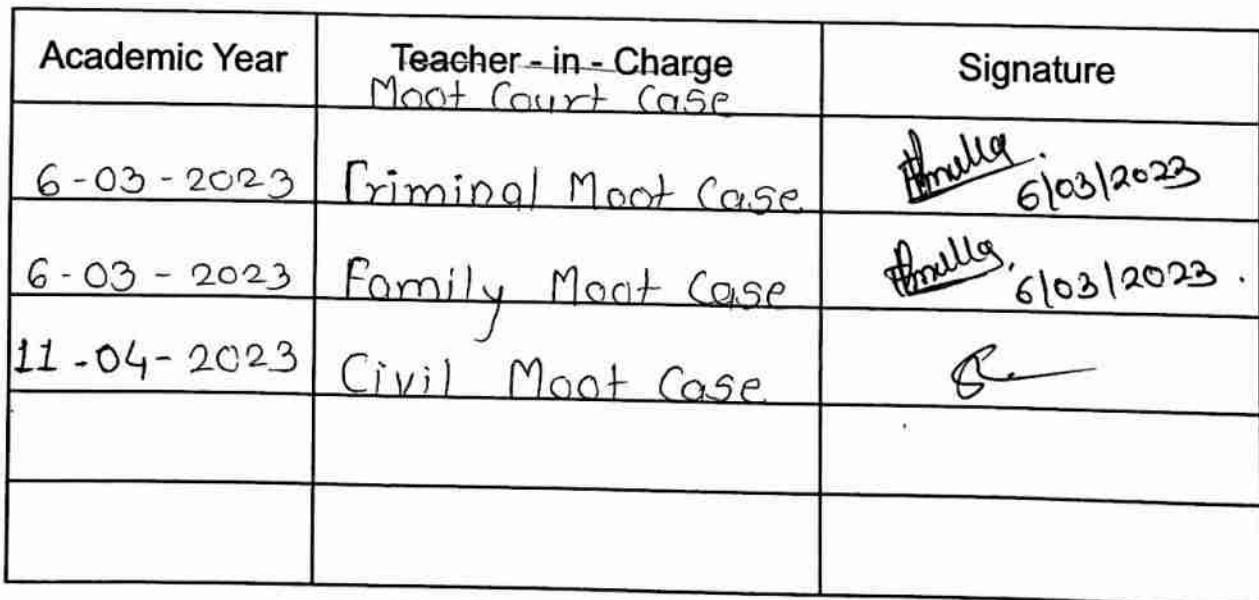 Academic Year Teacher - in - Charge Signature
Moot Court Case
6-03-2023 Criminal Moot Case 6/03/2023
6-03-2023 Family Moot Case 6/03/2023.
11-04-2023 Civil Moot Case